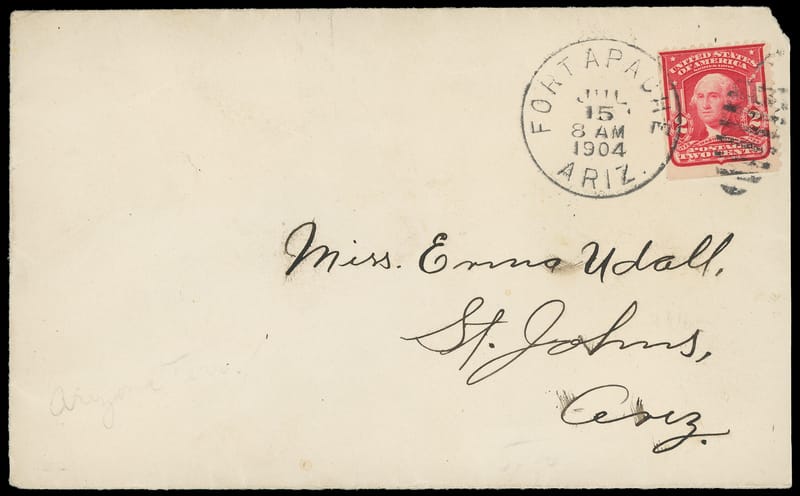 FORT APACHE
JUL
15
8 AM
1904
ARIZ.
UNITED STATES
OF AMERICA
2
POSTAGE
TWO CENTS
Miss. Emma Udall,
St. Johns,
Ariz.
Arizona Terr.